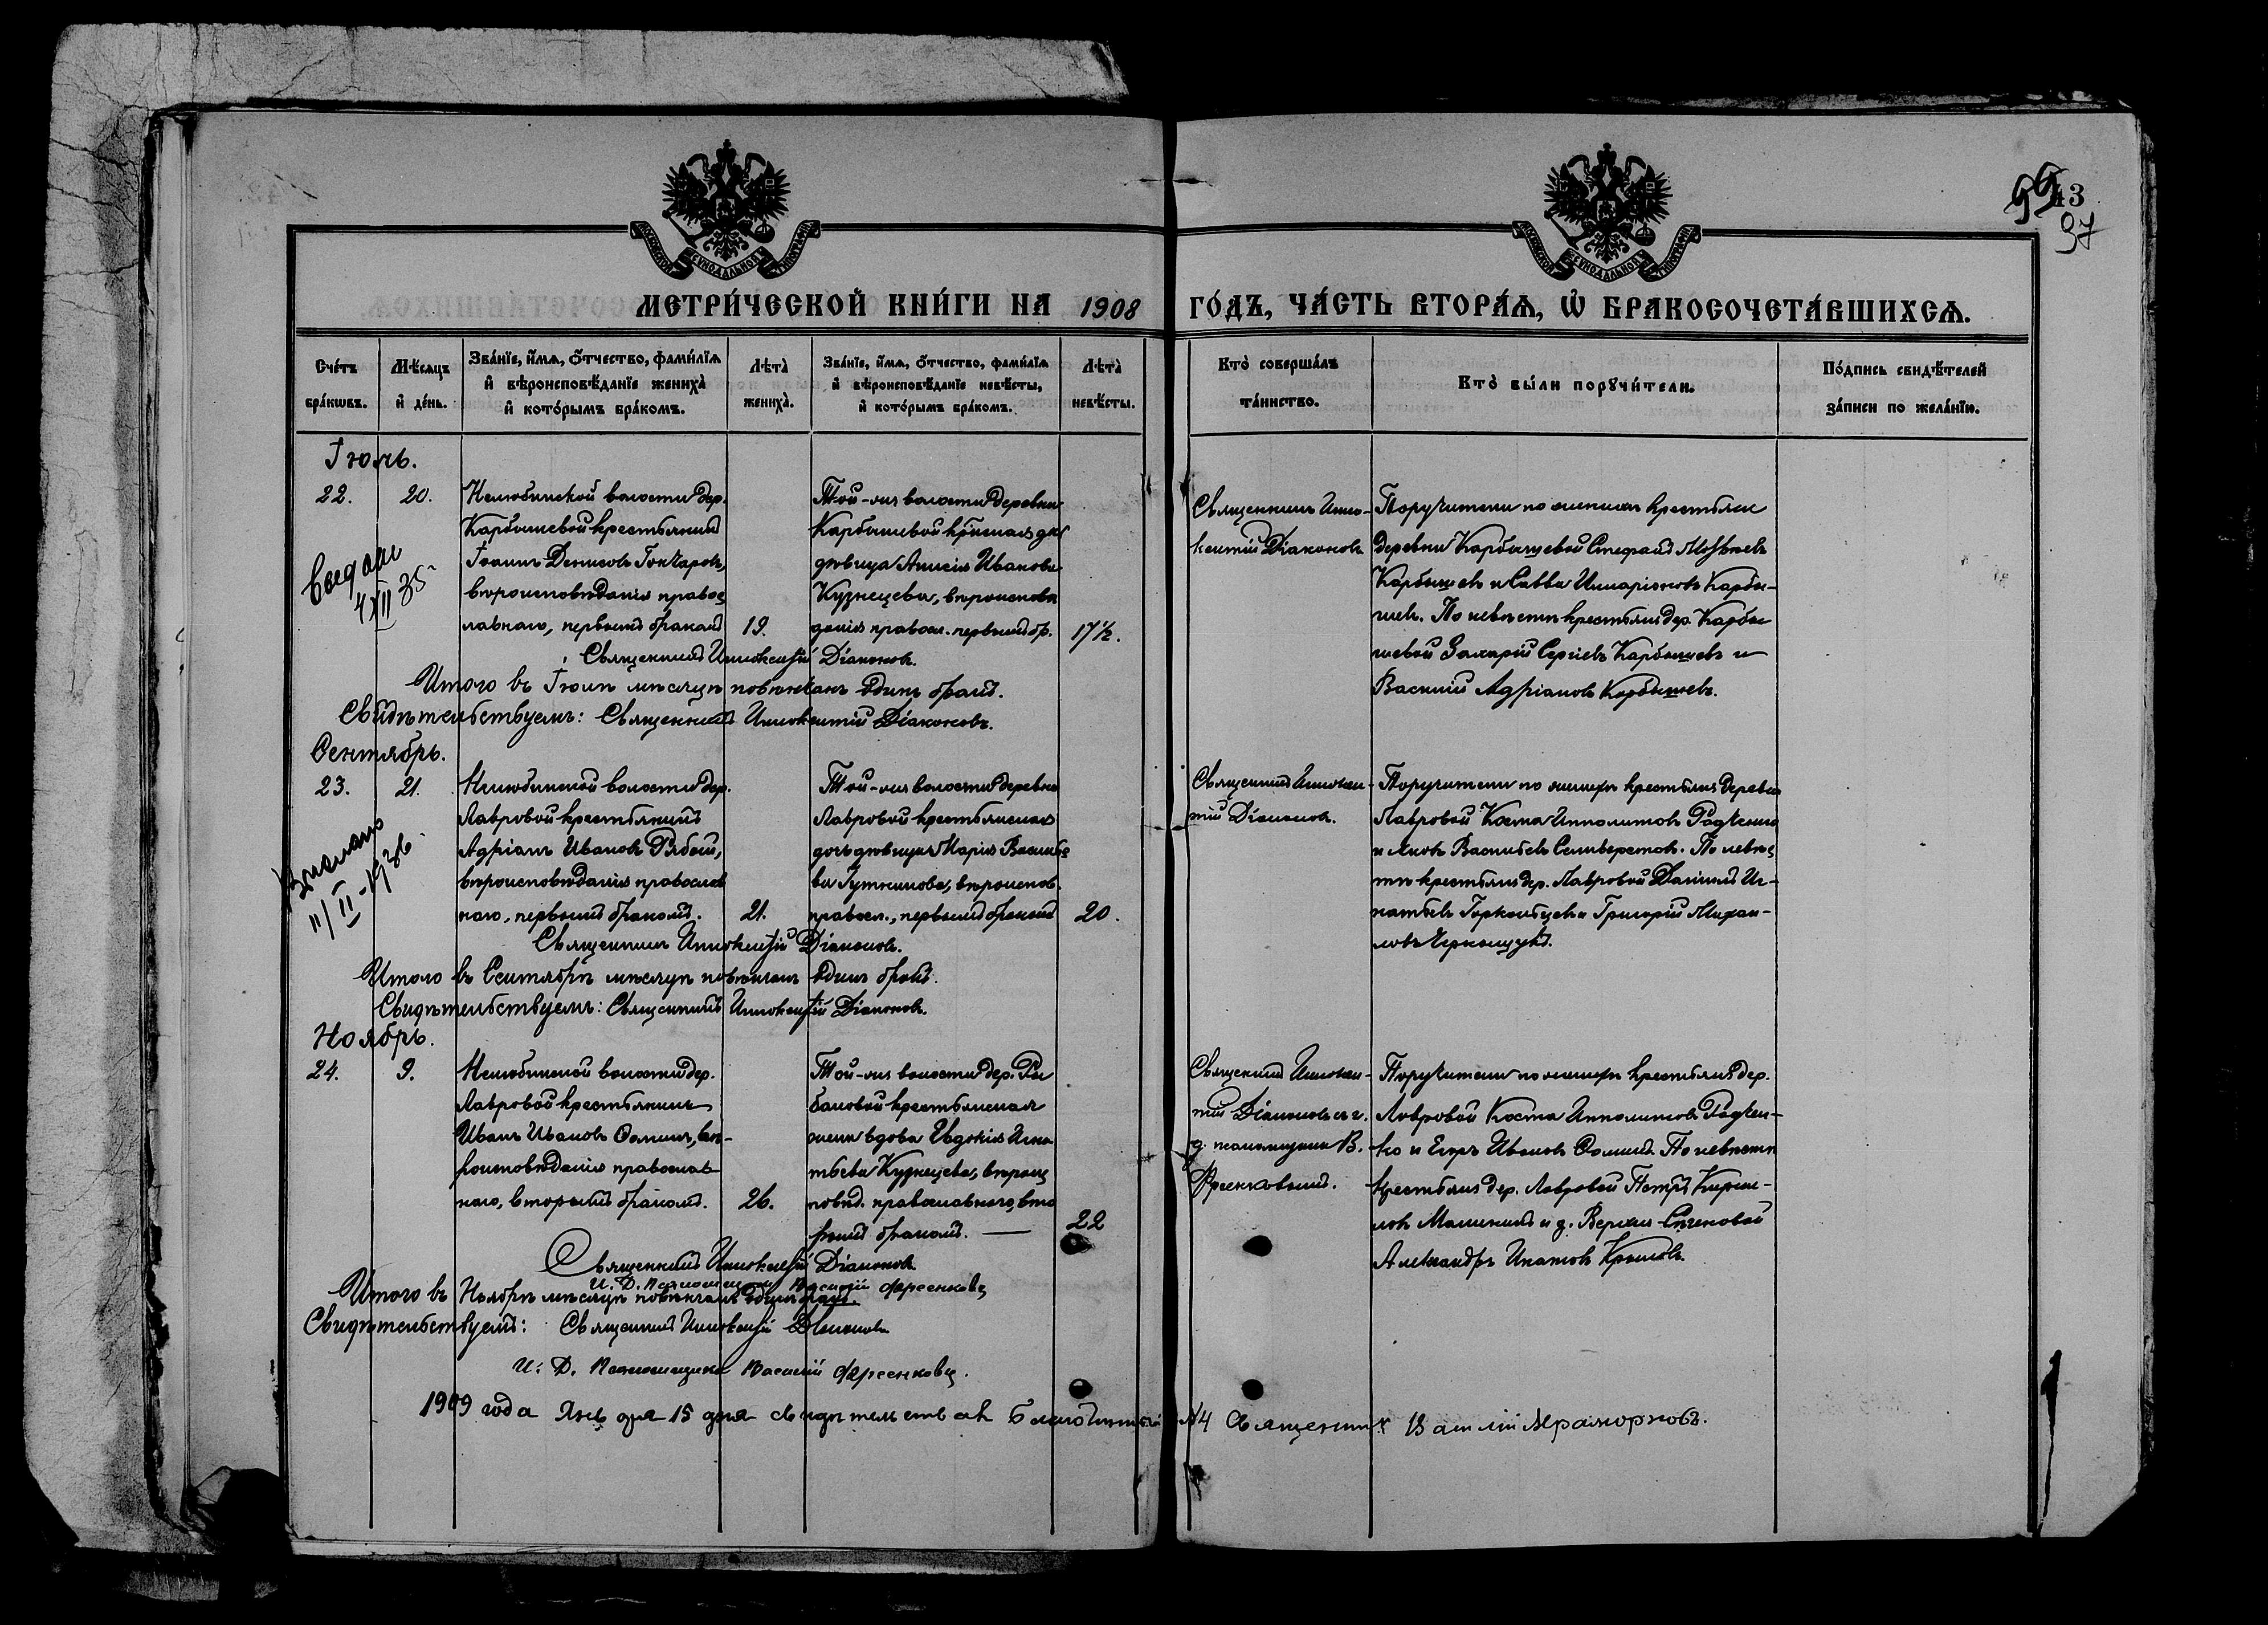 43
97
МЕТРИ́ЧЕСКОЙ КНИ́ГИ НА 1908 ГО́ДЪ, ЧА́СТЬ ВТОРА́Ѧ, Ѽ БРАКОСОЧЕТА́ВШИХСѦ.
Сче́тъ бра́кѡвъ.
Мѣ́сѧцъ и҆ де́нь.
Зва́нїе, и҆́мѧ, ѻ҆́тчество, фами́лїѧ
и҆ вѣроисповѣ́данїе жениха̀
и҆ кото́рымъ бра́комъ.
Лѣ́та̀ жениха̀.
Зва́нїе, и҆́мѧ, ѻ҆́тчество, фами́лїѧ
и҆ вѣроисповѣ́данїе невѣ́сты,
и҆ кото́рымъ бра́комъ.
Лѣ́та̀ невѣ́сты.
Кто̀ соверша́лъ
та́инство.
Кто̀ бы́ли порꙋчи́тели.
По́дпись свидѣ́телей
за́писи по жела́нїю.
Іюль.
22. 20.
Нелюбинской волости дер.
Карбышевой крестьянинъ
Іоаннъ Денисовъ Гончаровъ,
вѣроисповѣданія правос
лавнаго, первымъ бракомъ
19.
Той-же волости деревни
Карбышевой
дѣвица Анисія Иванова
Кузнецева, вѣроисповѣ
данія правосл. первымъ бр.
17½.
Священникъ Инно-
кентій Діаконовъ
Поручители по женихѣ крестьяне
деревни Карбышевой Стефанъ
Карбышевъ и Савва Иларіоновъ Карбы-
шевъ. По невѣстѣ крестьяне дер. Карбы
шевой Захарій Сергіевъ Карбышевъ и
Василій Адріановъ Карбышевъ.
4/XII 35
Священникъ Иннокентій Діаконовъ.
Итого въ Іюлѣ мѣсяцѣ повѣнчанъ одинъ бракъ.
Свидѣтельствуемъ: Священникъ Иннокентій Діаконовъ.
Сентябрь.
23. 21.
Нелюбинской волости дер.
Лавровой крестьянинъ
Адріанъ Ивановъ Рябой,
вѣроисповѣданія православ
наго, первымъ бракомъ.
21.
Той-же волости деревни
Лавровой крестьянская
дочь дѣвица Марія Василье
ва вѣроиспов.
правосл., первымъ бракомъ
20.
Священникъ Иннокен-
тій Діаконовъ.
Поручители по женихѣ крестьяне деревни
Лавровой Косма Ипполитовъ Радченко
и Яковъ Васильевъ Селиверстовъ. По невѣс
тѣ крестьяне дер. Лавровой Даніилъ Иг-
натьевъ и Григорій Михаи-
ловъ
11/II-1936.
Священникъ Иннокентій Діаконовъ.
Итого въ Сентябрѣ мѣсяцѣ повѣнчанъ одинъ бракъ.
Свидѣтельствуемъ: Священникъ Иннокентій Діаконовъ.
Ноябрь.
24. 9.
Нелюбинской волости дер.
Лавровой крестьянинъ
Иванъ Ивановъ Ѳоминъ, вѣ-
роисповѣданія православ
наго, вторымъ бракомъ.
26.
Той-же волости дер. Ры
баловой крестьянская
жена вдова Евдокія Игна
тьева Кузнецева, вѣроис
повѣд. православнаго, вто
рымъ бракомъ. —
22
Священникъ Иннокен-
тій Діаконовъ и и.
д. псаломщика В.
Поручители по женихѣ крестьяне дер.
Лавровой Косма Ипполитовъ Радчен-
ко и Егоръ Ивановъ Ѳоминъ. По невѣстѣ
крестьяне дер. Лавровой Петръ Кирил-
ловъ и д. Верхне-Сѣченовой
Александръ Игнатовъ Крыловъ.
Священникъ Иннокентій Діаконовъ
И. Д. Псаломщика Василій
Итого въ Ноябрѣ мѣсяцѣ повѣнчанъ одинъ бракъ.
Свидѣтельствуемъ: Священникъ Иннокентій Діаконовъ
И. Д. Псаломщика Василій
1909 года Января 15 дня свидѣтельств. Благочинный №4 Священникъ Василій Мраморновъ.